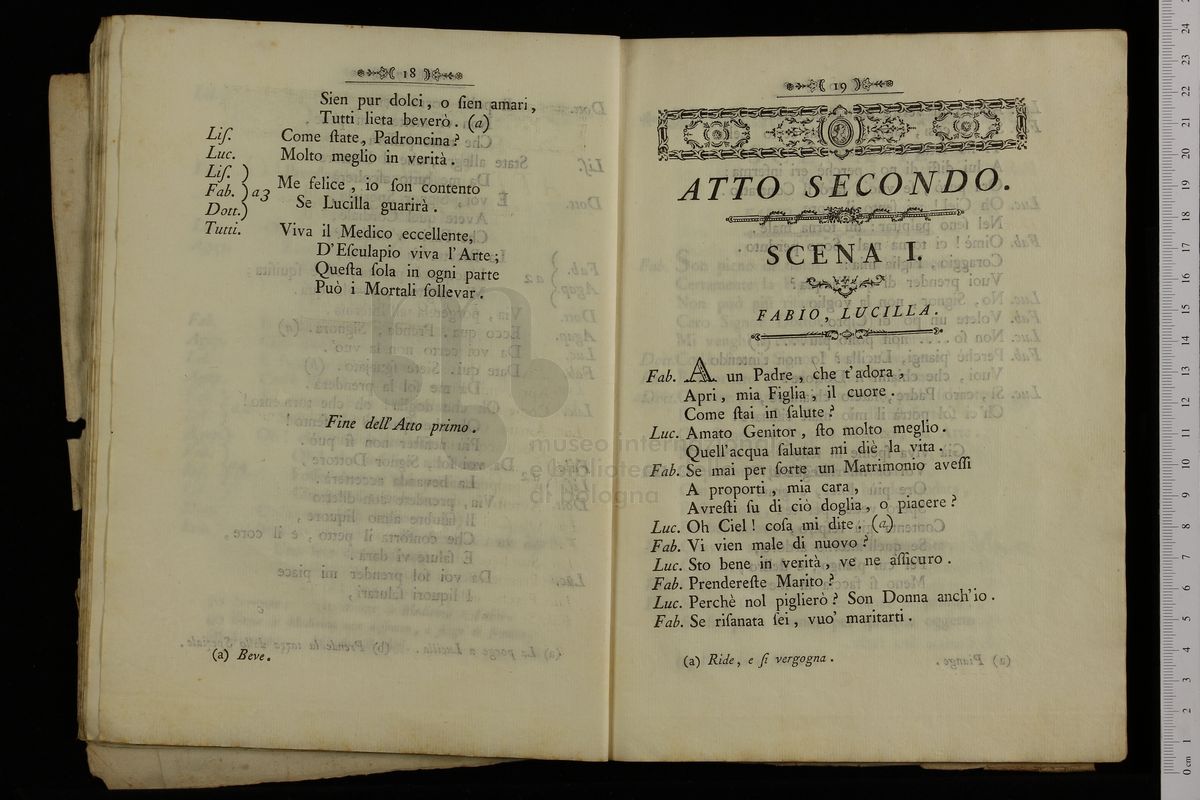 18
Sien pur dolci, o ſien amari,
Tutti lieta beverò. (a)
Liſ. Come ſtate, Padroncina?
Luc. Molto meglio in verità.
Liſ. )
Fab. ) a 3 Me felice, io ſon contento
Dott.) Se Lucilla guarirà.
Tutti. Viva il Medico eccellente,
D'Eſculapio viva l'Arte;
Queſta ſola in ogni parte
Può i Mortali ſollevar.
Fine dell'Atto primo.
(a) Beve.
19
ATTO SECONDO.
SCENA I.
FABIO, LUCILLA.
Fab. A un Padre, che t'adora,
Apri, mia Figlia, il cuore.
Come ſtai in ſalute?
Luc. Amato Genitor, ſto molto meglio.
Quell'acqua ſalutar mi diè la vita.
Fab. Se mai per ſorte un Matrimonio aveſſi
A proporti, mia cara,
Avreſti ſu di ciò doglia, o piacere?
Luc. Oh Ciel! coſa mi dite. (a)
Fab. Vi vien male di nuovo?
Luc. Sto bene in verità, ve ne aſſicuro.
Fab. Prendereſte Marito?
Luc. Perchè nol piglierò? Son Donna anch'io.
Fab. Se riſanata ſei, vuo' maritarti.
(a) Ride, e ſi vergogna.
museo internazionale
e biblioteca
di bologna